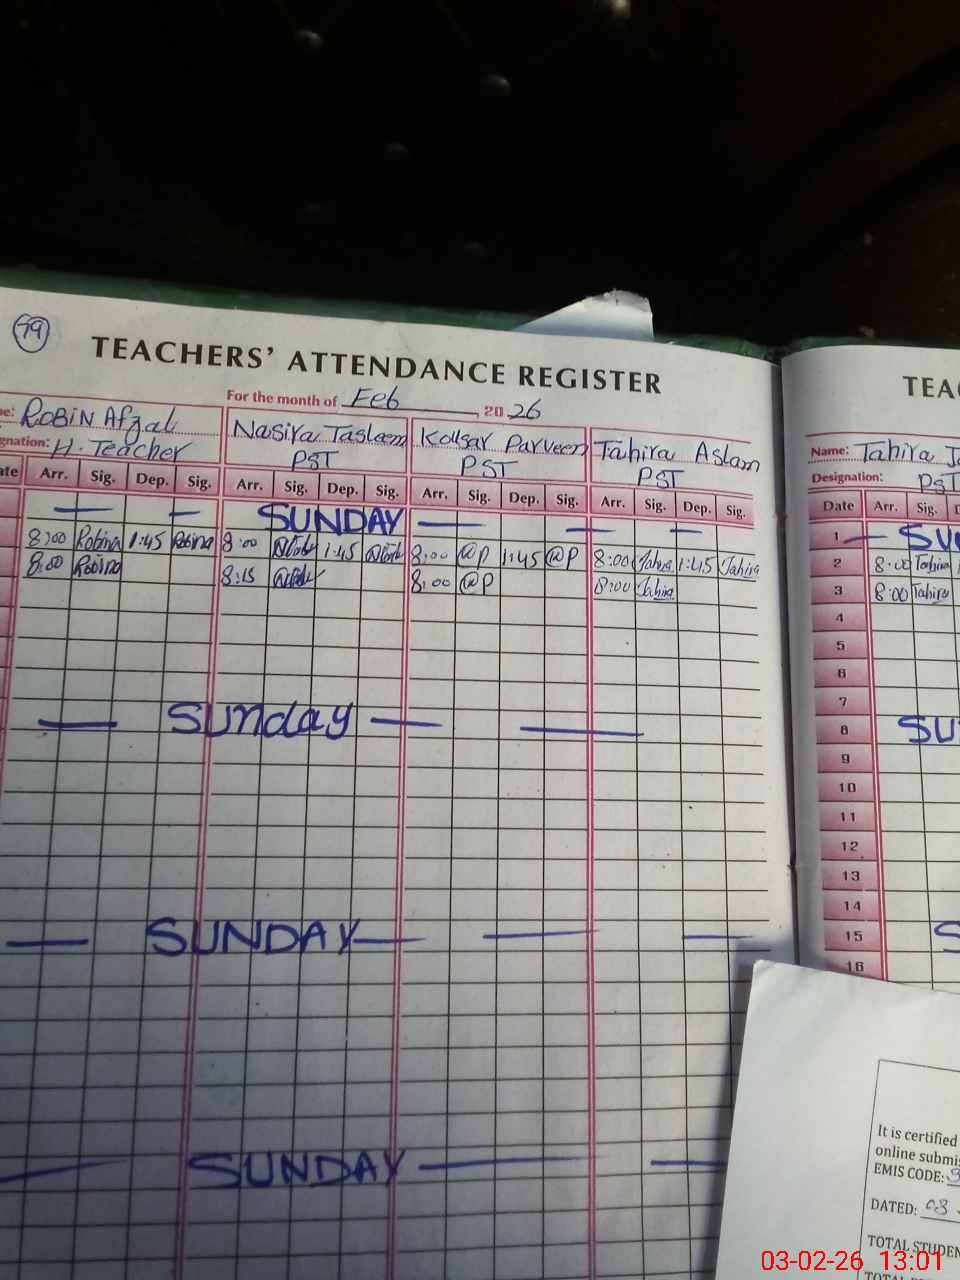 79
TEACHERS' ATTENDANCE REGISTER
For the month of Feb, 2026
me: ROBIN Afzal
Nasira Tasleem
Kousar Parveen
Tahira Aslam
gnation: H. Teacher
PST
PST
PST
ate Arr. Sig. Dep. Sig. Arr. Sig. Dep. Sig. Arr. Sig. Dep. Sig. Arr. Sig. Dep. Sig.
— — SUNDAY — — —
8:00 Robina 1:45 Robina 8:00 1:45 8:00 @P 1:45 @P 8:00 Tahira 1:45 Tahira
8:00 Robina 8:15 8:00 @P 8:00 Tahira
— Sunday — —
— SUNDAY — — —
— SUNDAY — —
TEAC
Name: Tahira J
Designation: PST
Date Arr. Sig. D
1 — SU
2 8:00 Tahira 1
3 8:00 Tahira
4
5
6
7
8 SU
9
10
11
12
13
14
15 S
16
It is certified
online submis
EMIS CODE: 3
DATED: 03
TOTAL STUDEN
TOTAL
03-02-26 13:01